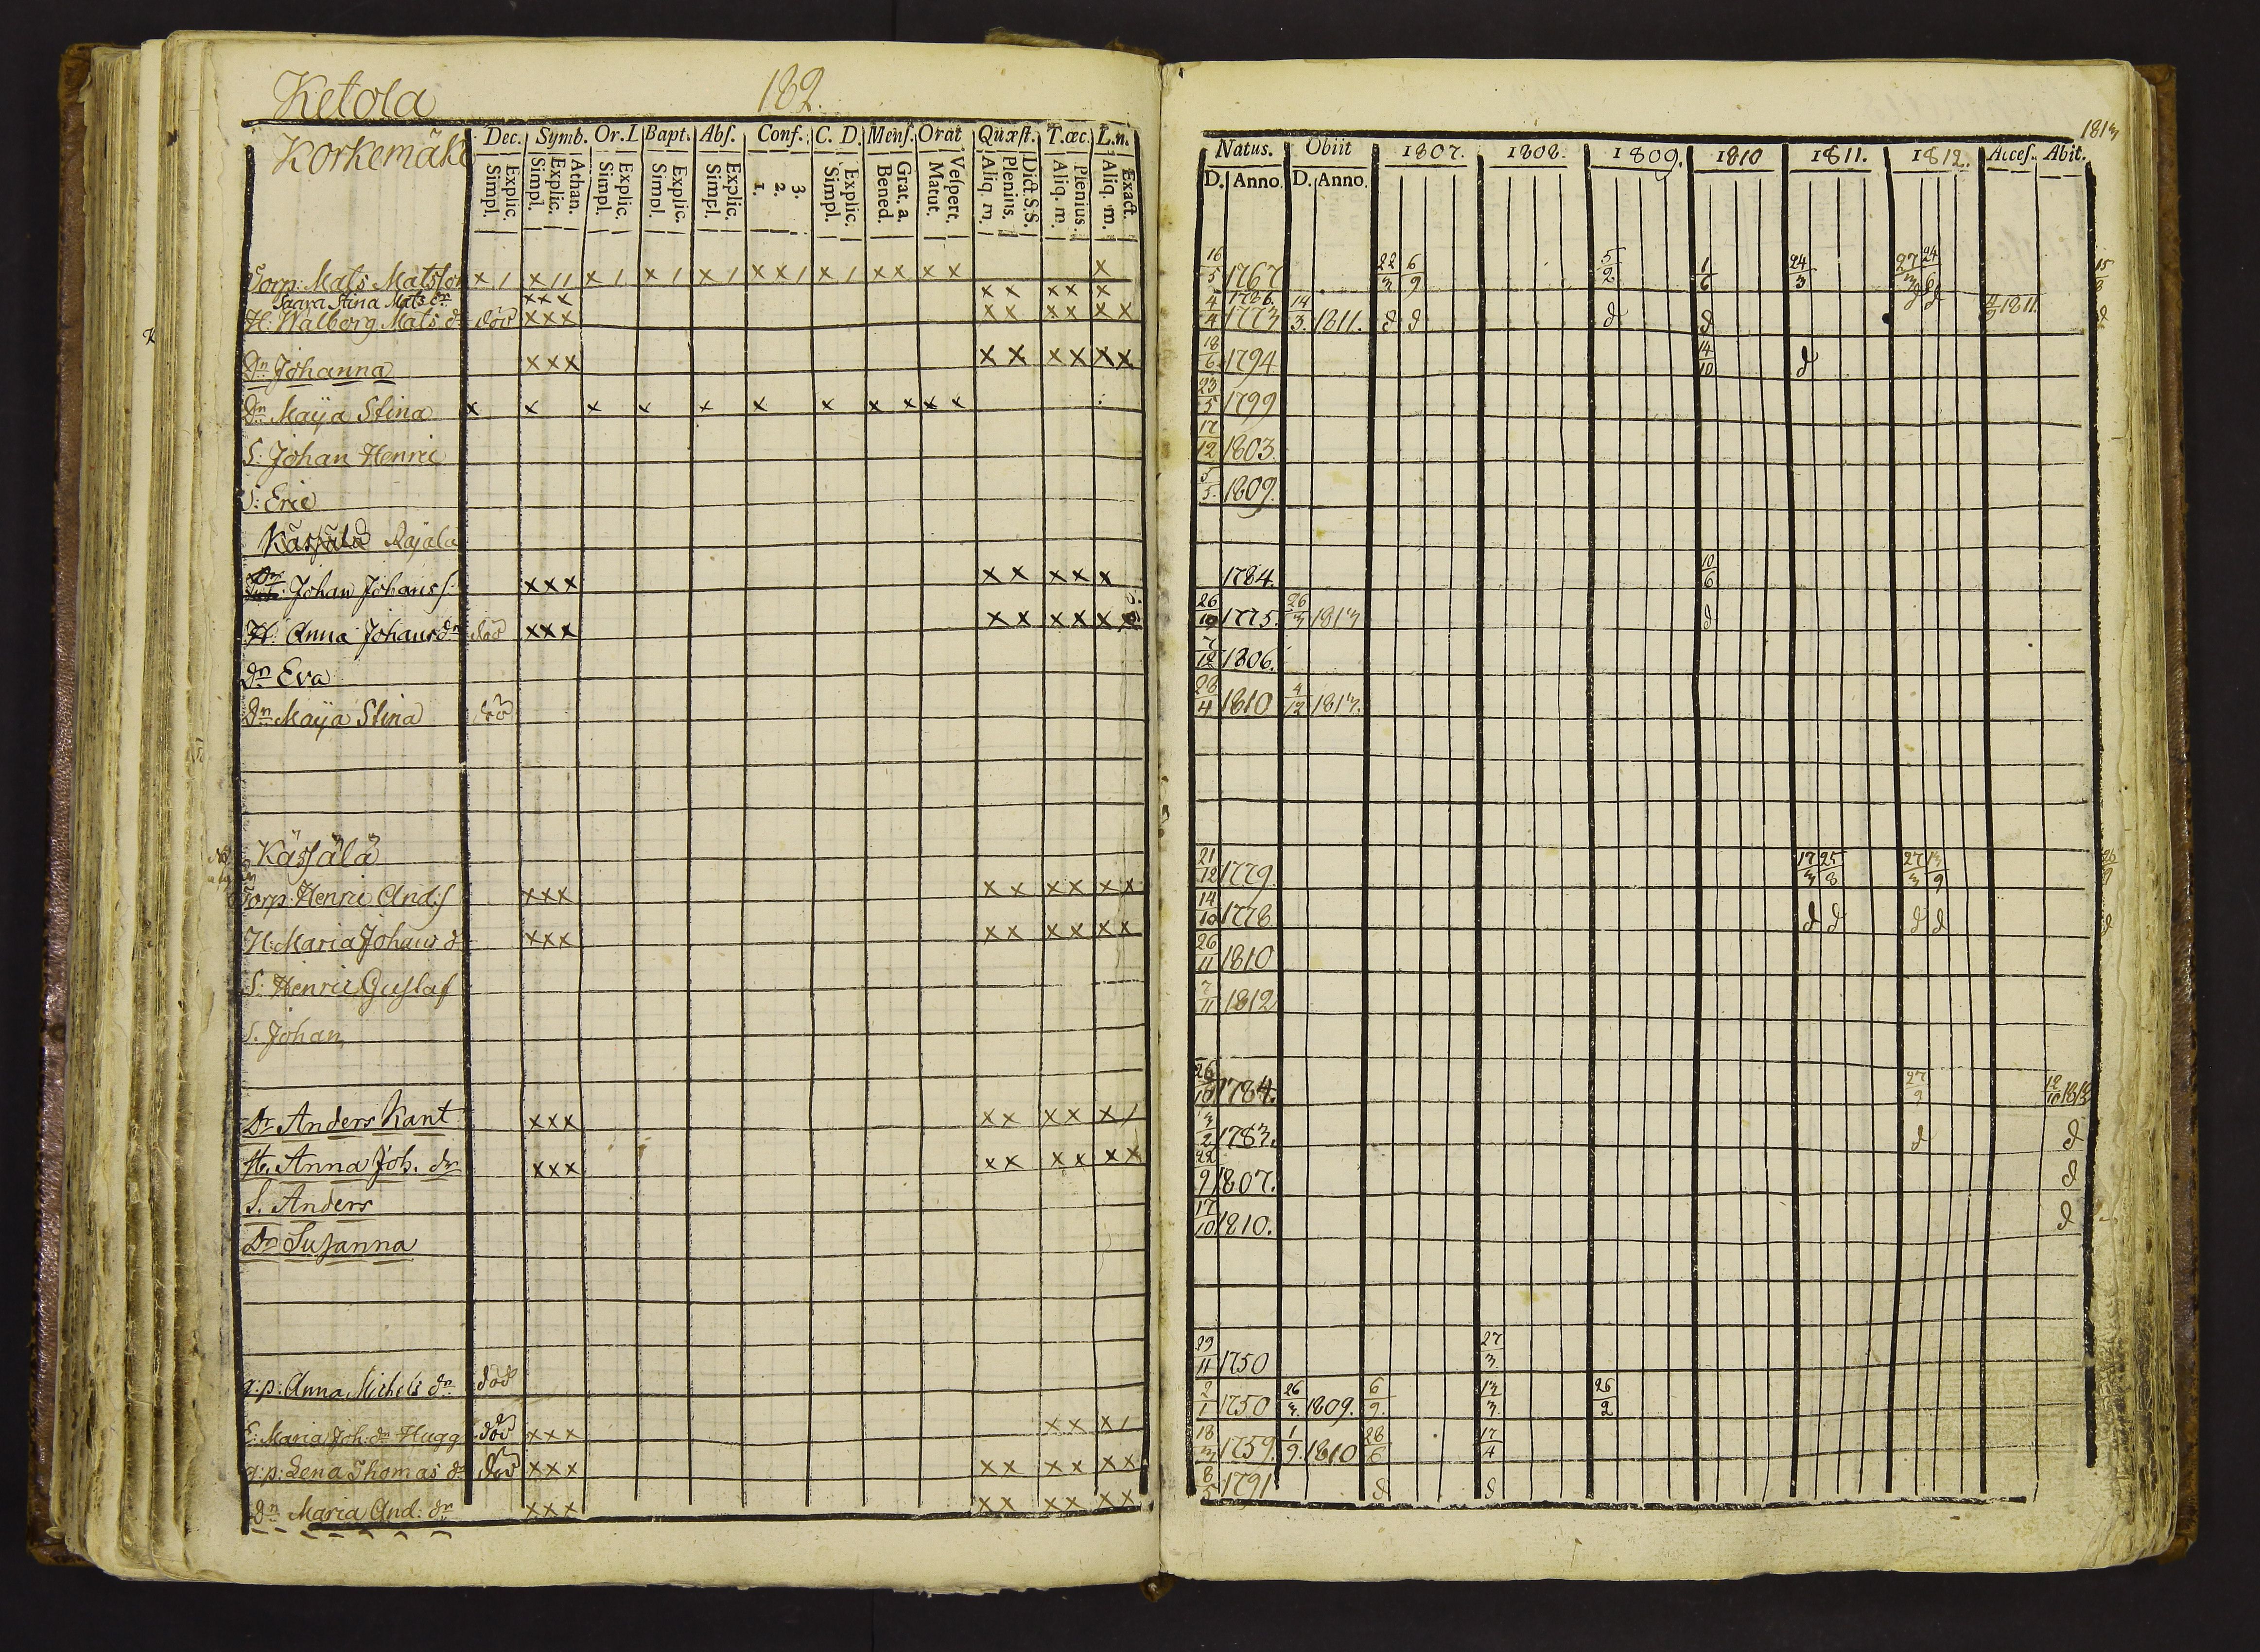 Ketola 182.
Korkemäke
Dec. Symb. Or. L Bapt. Abs. Conf. C. D. Mens. Orat. Quæst. T. œc. L. n.
Explic. Simpl. Athan. Explic. Simpl. Explic. Simpl. Explic. Simpl. Explic. Simpl. 3. 2. 1. Explic. Simpl. Grat. a. Bened. Vespert. Matut. Dict. S.S. Plenius. Aliq. m. Plenius. Aliq. m. Exact. Aliq. m.
Torp: Mats Matsson x / x // x / x / x / x x / x / x x x x x
Saara Stina Mats dr x x x x x x x x
H: Walborg Mats dr död x x x x x x x x x
Dr Johanna x x x x x x x x x
Dr Maija Stina x x x x x x x x x x x
S: Johan Henric
S: Eric
Kässälä Rajala
Johan Johanss: x x x x x x x x
H: Anna Johans dr död x x x x x x x x
dr Eva
Dr Maija Stina död
Kässälä
Torp: Henric And:s x x x x x x x x x
H: Maria Johans dr x x x x x x x x x
S: Henric Gustaf
S. Johan
Dr Anders Kant x x x x x x x x /
H. Anna Joh. dr x x x x x x x x x
S. Anders
Dr Susanna
q:p: Anna Michels dr död
E: Maria Joh: dr Hugg död x x x x x x /
q:p: Lena Thomas dr död x x x x x x x x x
Dr Maria And: dr x x x x x x x x x
1813
Natus. Obiit 1807. 1808. 1809. 1810 1811. 1812. Acces. Abit.
D. Anno. D. Anno.
16/5 1767 22/3 6/9 5/2 1/6 24/3 27/3 24
1786. 1811.
4/4 1773 14/3 1811. d d d d
18/6 1794 14/10 d
23/5 1799
17/12 1803.
5/5. 1809.
1784. 10/6
26/10 1775. 26/3 1813 d
7/12 1806.
28/4 1810 4/12 1813.
21/12 1779 17/3 25/8 27/3 13/9
14/10 1778 d d d d d
26/11 1810
7/11 1812
26/10 1784. 27/9 12/10 1813
3/2 1783. d d
22/9 1807. d
17/10 1810. d
29/11 1750 27/3.
2/1 1750 26/3. 1809. 6/9. 13/3. 26/2
18/3 1759. 1/9. 1810 28/6 17/4
1791 d d